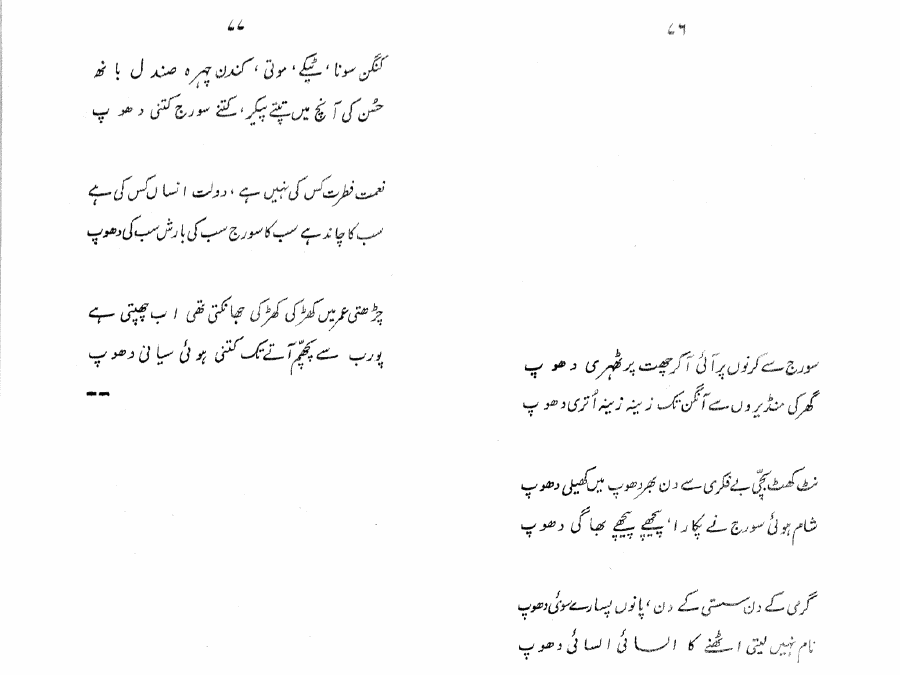 ۷۶
سورج سے کرنوں پر آئی آ کر چھت پر ٹھہری دھوپ
گھر کی منڈیروں سے آنگن تک زینہ زینہ اُتری دھوپ
نٹ کھٹ بچّی بے فکری سے دن بھر دھوپ میں کھیلی دھوپ
شام ہوئی سورج نے پکارا، پیچھے پیچھے بھاگی دھوپ
گرمی کے دن سستی کے دن، پانوں پسارے سوئی دھوپ
نام نہیں لیتی اٹھنے کا السائی السائی دھوپ
۷۷
کنگن سونا، ٹیکے، موتی، کندن چہرہ صندل بانھ
حُسن کی آنچ میں تپتے پیکر، کتنے سورج کتنی دھوپ
نعمت فطرت کس کی نہیں ہے، دولت انساں کس کی ہے
سب کا چاند ہے سب کا سورج سب کی بارش سب کی دھوپ
چڑھتی عمر میں کھڑکی کھڑکی جھانکتی تھی اب چھپتی ہے
پورب سے پچھّم آتے تک کتنی ہوئی سیانی دھوپ